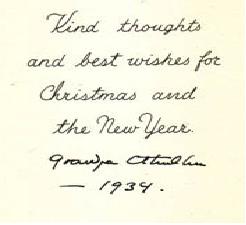 Kind thoughts
and best wishes for
Christmas and
the New Year.
Grandpa
— 1939.